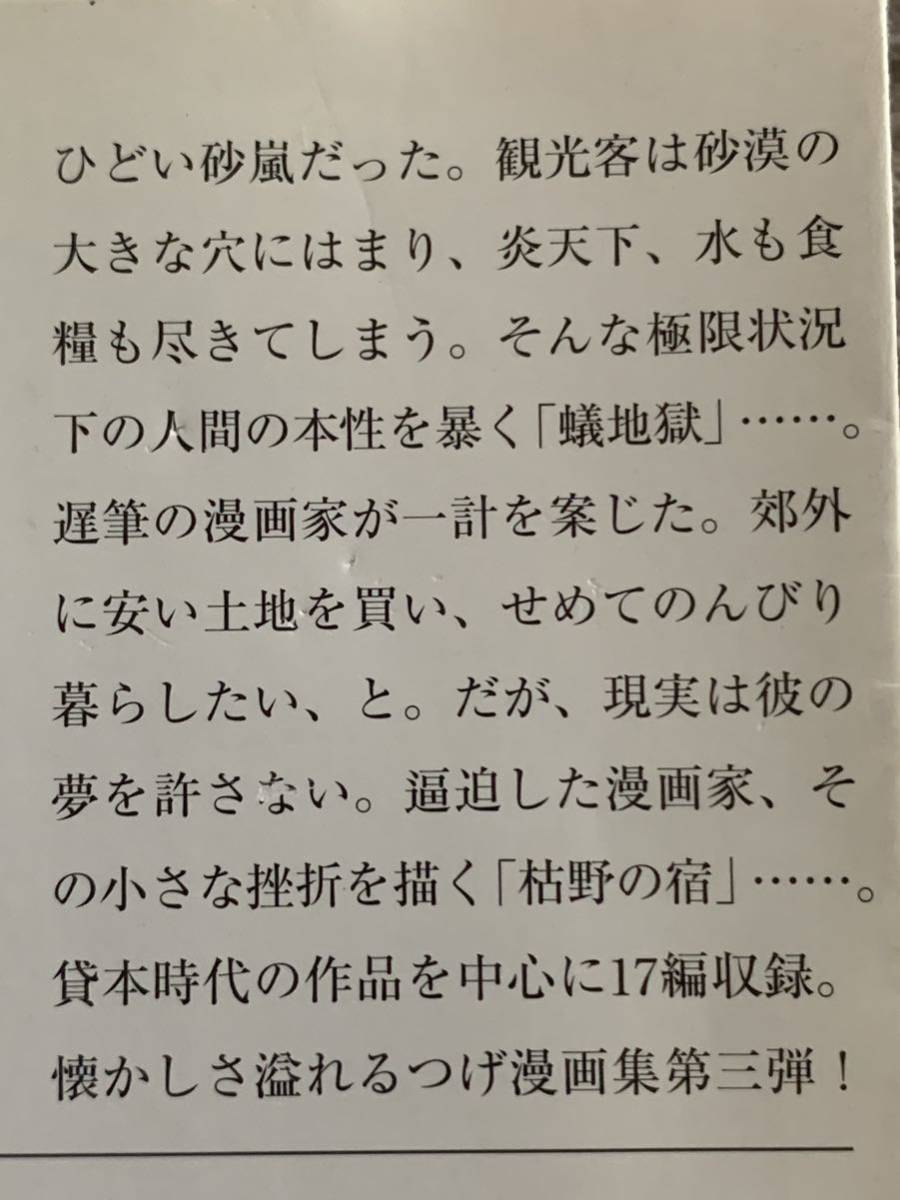 ひどい砂嵐だった。観光客は砂漠の
大きな穴にはまり、炎天下、水も食
糧も尽きてしまう。そんな極限状況
下の人間の本性を暴く「蟻地獄」……。
遅筆の漫画家が一計を案じた。郊外
に安い土地を買い、せめてのんびり
暮らしたい、と。だが、現実は彼の
夢を許さない。逼迫した漫画家、そ
の小さな挫折を描く「枯野の宿」……。
貸本時代の作品を中心に17編収録。
懐かしさ溢れるつげ漫画集第三弾！